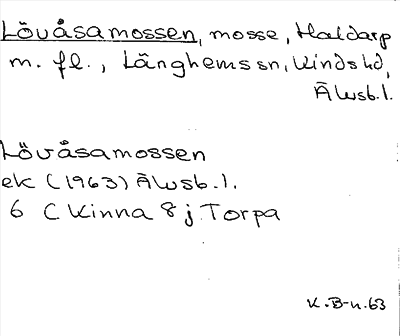 Lövåsamossen, mosse, Haldarp
m. fl., Länghems sn, Kinds hd,
Älvsb. l.
Lövåsamossen
ek (1963) Älvsb. l.
6 C Kinna 8 j Torpa
K. B-n. 63